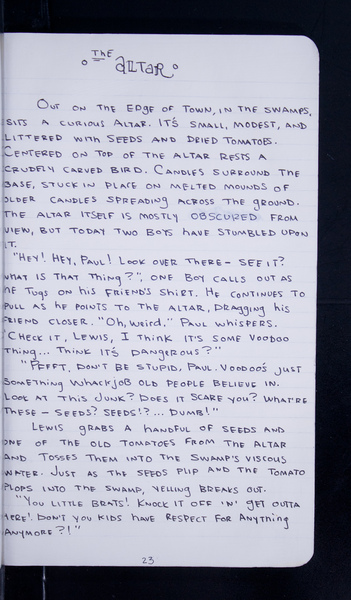 THE
ALTAR
OUT ON THE EDGE OF TOWN, IN THE SWAMPS,
SITS A CURIOUS ALTAR. IT'S SMALL, MODEST, AND
LITTERED WITH SEEDS AND DRIED TOMATOES.
CENTERED ON TOP OF THE ALTAR RESTS A
CRUDELY CARVED BIRD. CANDLES SURROUND THE
BASE, STUCK IN PLACE ON MELTED MOUNDS OF
OLDER CANDLES SPREADING ACROSS THE GROUND.
THE ALTAR ITSELF IS MOSTLY OBSCURED FROM
VIEW, BUT TODAY TWO BOYS HAVE STUMBLED UPON
IT.
"HEY! HEY, PAUL! LOOK OVER THERE - SEE IT?
WHAT IS THAT THING?", ONE BOY CALLS OUT AS
HE TUGS ON HIS FRIEND'S SHIRT. HE CONTINUES TO
PULL AS HE POINTS TO THE ALTAR, DRAGGING HIS
FRIEND CLOSER. "OH, WEIRD." PAUL WHISPERS.
"CHECK IT, LEWIS, I THINK IT'S SOME VOODOO
THING... THINK IT'S DANGEROUS?"
"PFFFT, DON'T BE STUPID, PAUL. VOODOO'S JUST
SOMETHING WHACKJOB OLD PEOPLE BELIEVE IN.
LOOK AT THIS JUNK? DOES IT SCARE YOU? WHAT'RE
THESE - SEEDS? SEEDS!?... DUMB!"
LEWIS GRABS A HANDFUL OF SEEDS AND
ONE OF THE OLD TOMATOES FROM THE ALTAR
AND TOSSES THEM INTO THE SWAMP'S VISCOUS
WATER. JUST AS THE SEEDS PLIP AND THE TOMATO
PLOPS INTO THE SWAMP, YELLING BREAKS OUT.
"YOU LITTLE BRATS! KNOCK IT OFF 'N' GET OUTTA
HERE! DON'T YOU KIDS HAVE RESPECT FOR ANYTHING
ANYMORE?!"
23